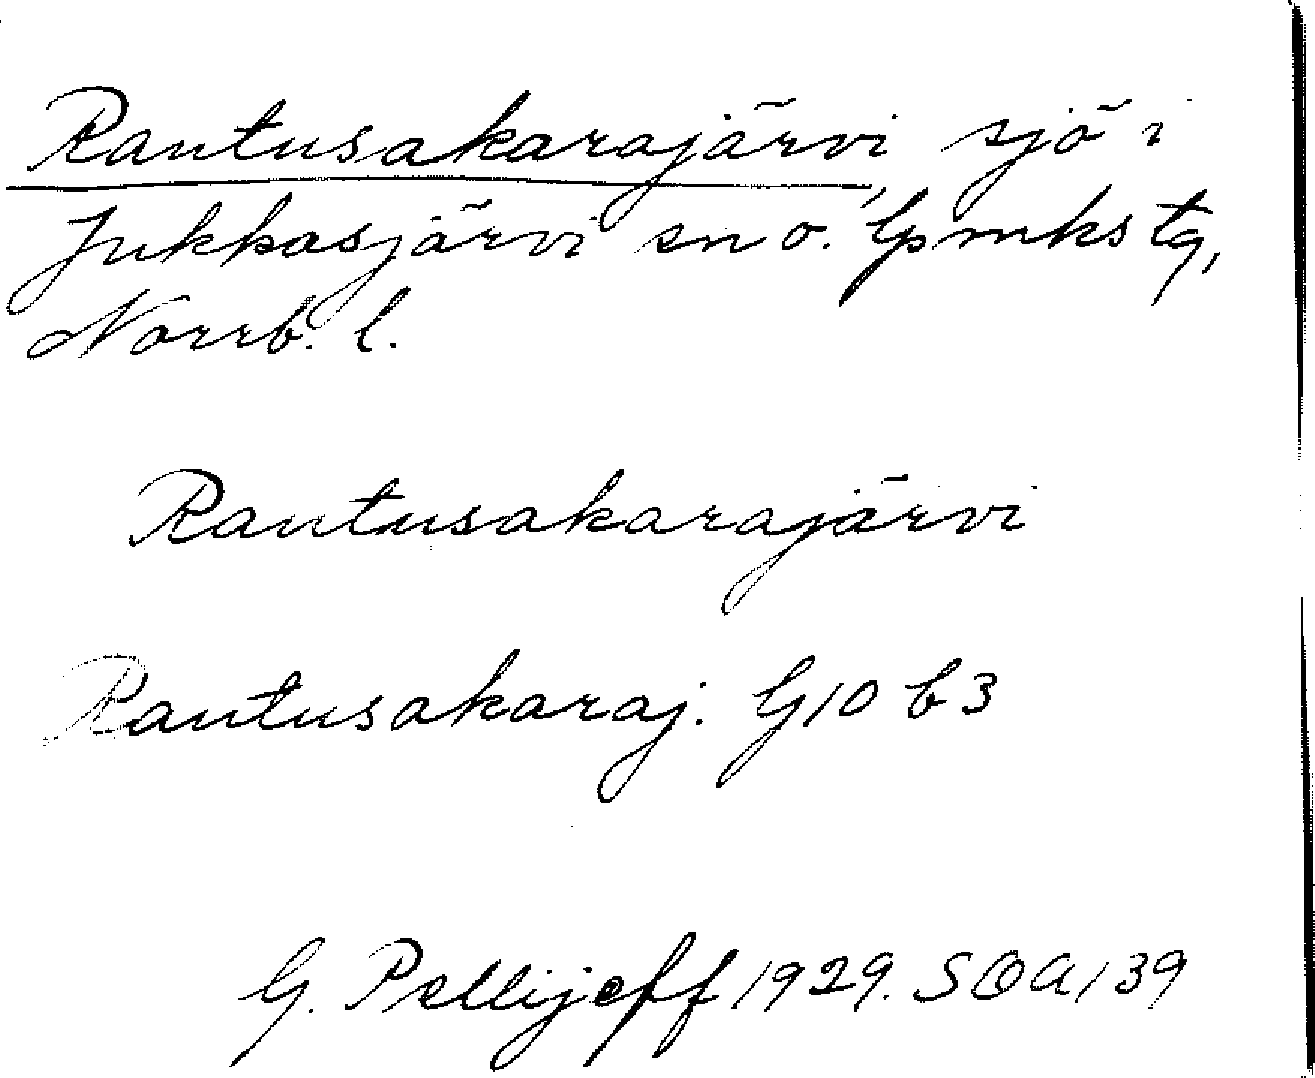 Rautusakarajärvi, sjö i
Jukkasjärvi sn o. lpmkstg,
Norrb. l.
Rautusakarajärvi
Rautusakaraj. G10 b3
G. Pellijeff 1929. SOA 139